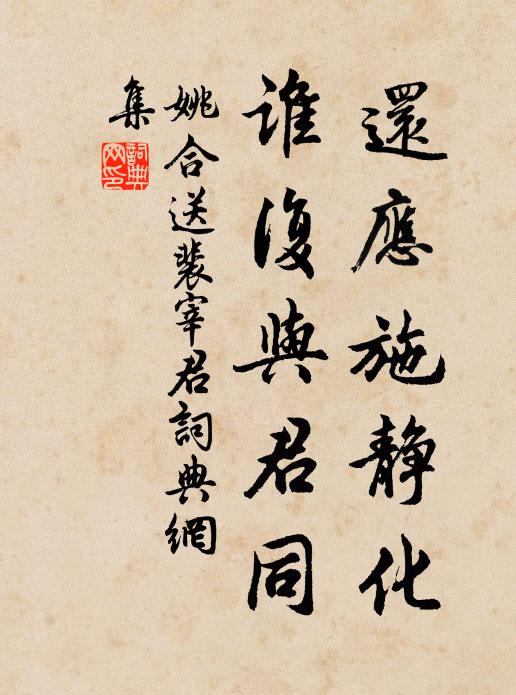 還應施静化
誰復與君同
姚合送裴宰君詞典網
集
詞典
网印